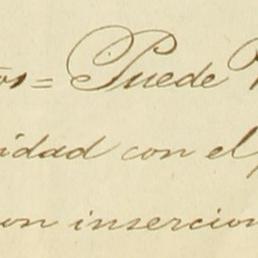 os = Puede V
idad con el
on insercion